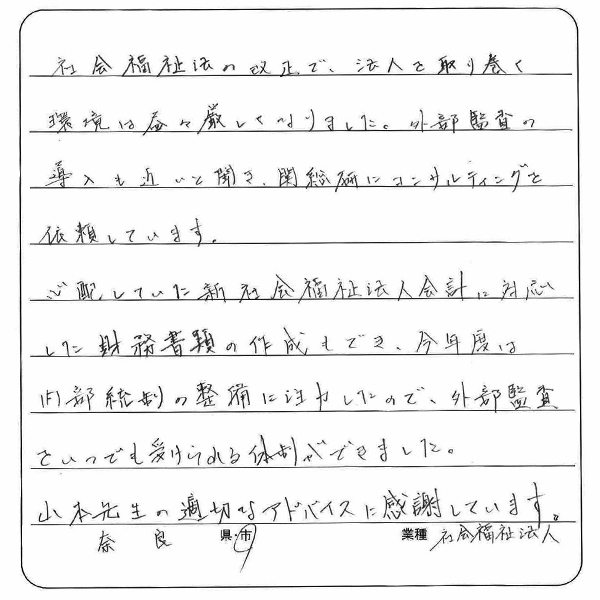 社会福祉法の改正で、法人を取り巻く
環境は益々厳しくなりました。外部監査の
導入も近いと聞き、関総研にコンサルティングを
依頼しています。
心配していた新社会福祉法人会計に対応
した財務書類の作成もでき、今年度は
内部統制の整備に注力したので、外部監査
をいつでも受けられる体制ができました。
山本先生の適切なアドバイスに感謝しています。
奈良 県・市 業種 社会福祉法人